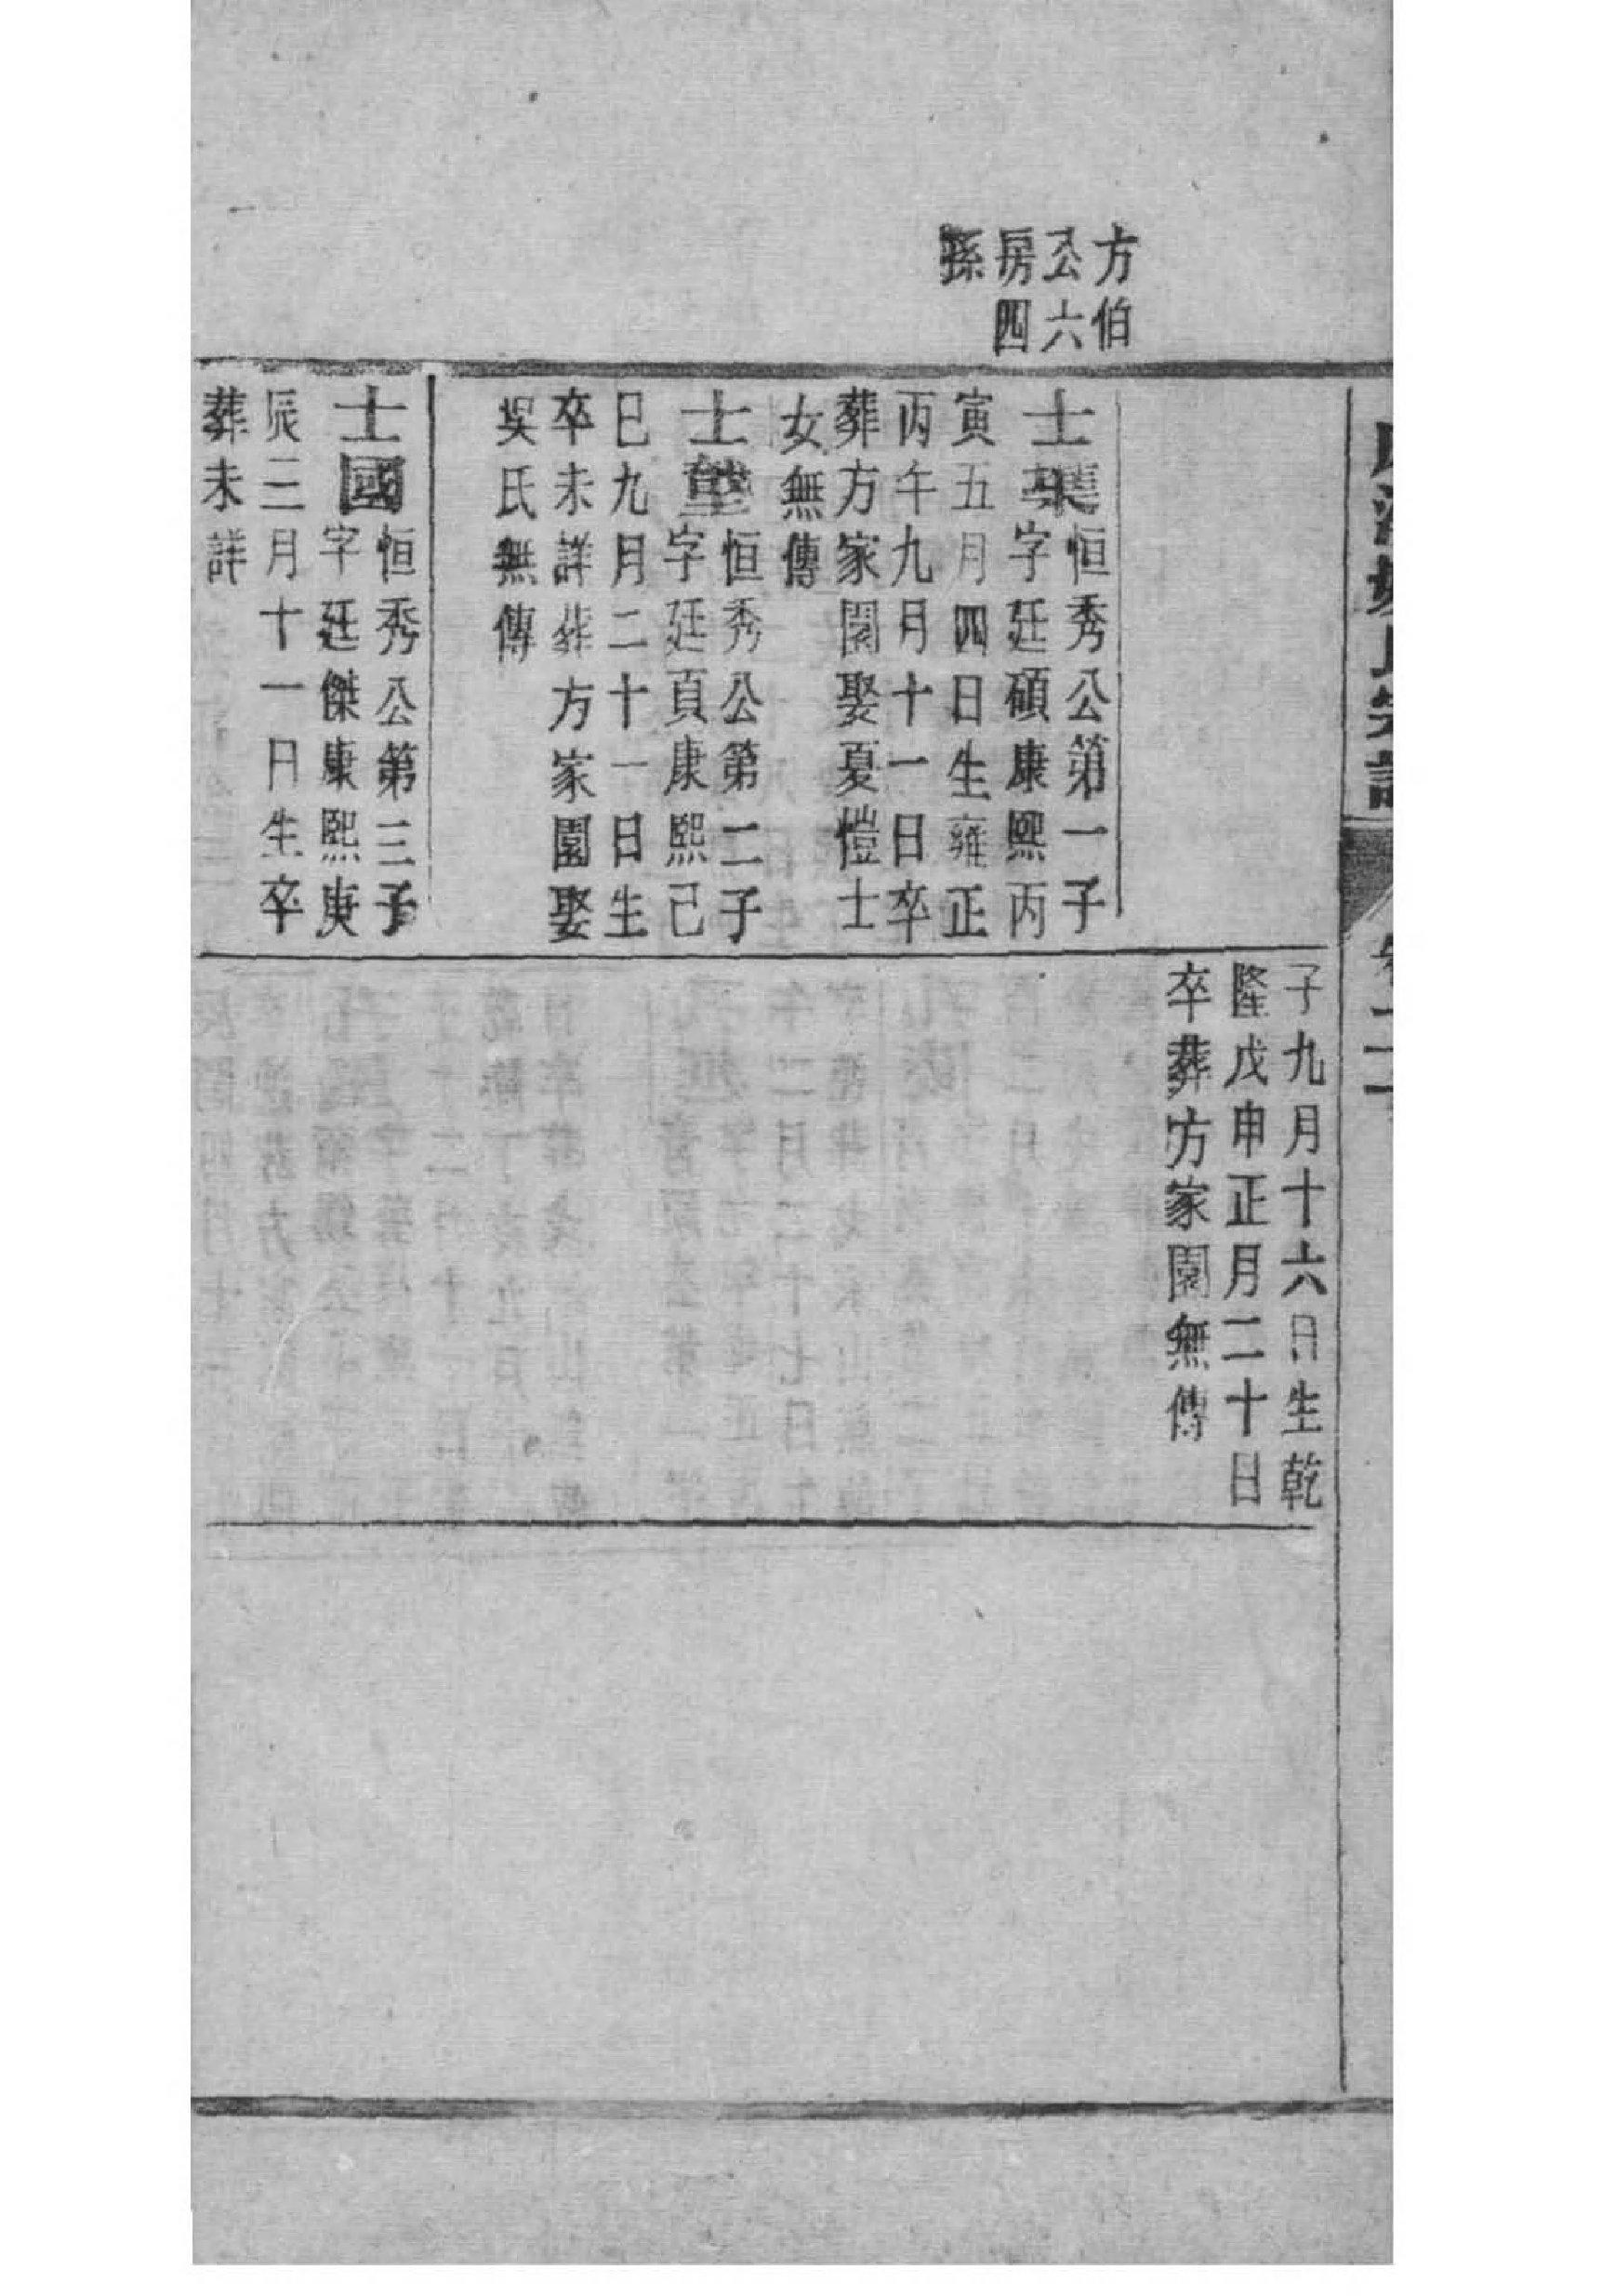 方伯
公六
房四
孫
士
恒秀公第一子
字廷碩康熙丙
寅五月四日生雍正
丙午九月十一日卒
葬方家園娶夏愷士
女無傳
士
恒秀公第二子
字廷頁康熙己
巳九月二十一日生
卒未詳葬方家園娶
吴氏無傳
士國
恒秀公第三子
字廷傑康熙庚
辰三月十一日生卒
葬未詳
子九月十六日生乾
隆戊申正月二十日
卒葬方家園無傳